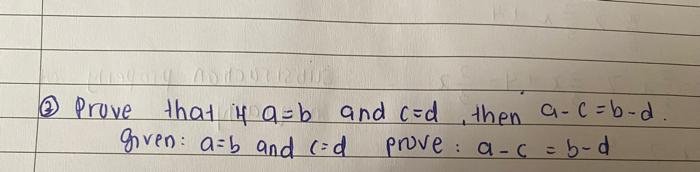 ② Prove that if a=b and c=d, then a-c=b-d.
given: a=b and c=d prove: a-c = b-d